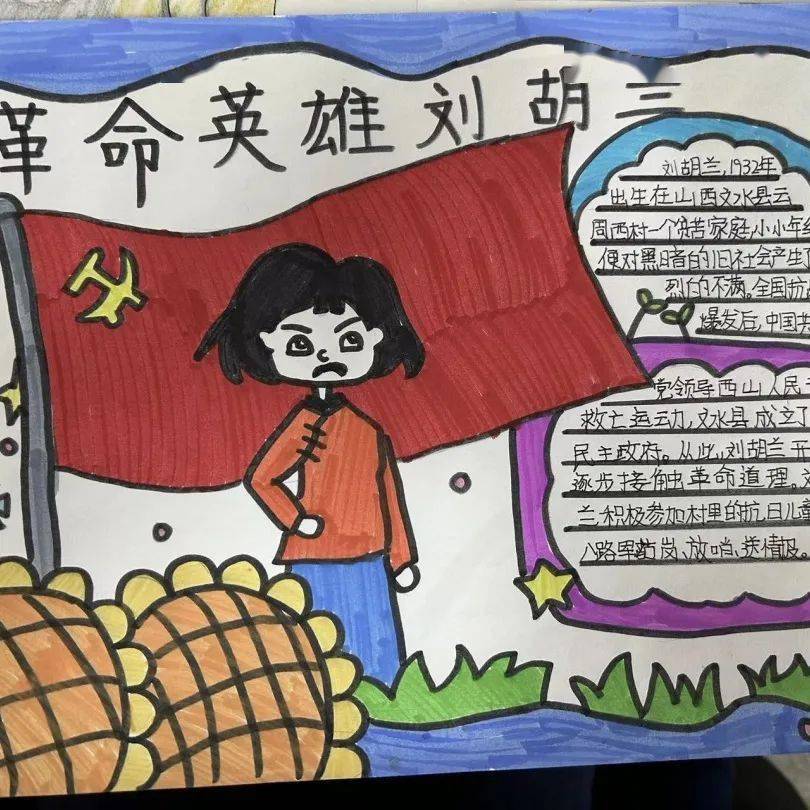 革命英雄刘胡三
刘胡兰,1932年
出生在山西文水县云
周西村一个贫苦家庭,小小年纪
便对黑暗的旧社会产生了
烈的不满。全国抗
爆发后,中国共
党领导西山人民
救亡运动,文水县成立了
民主政府。从此,刘胡兰开
逐步接触革命道理。
兰积极参加村里的抗日儿童
八路军站岗、放哨、送情报。